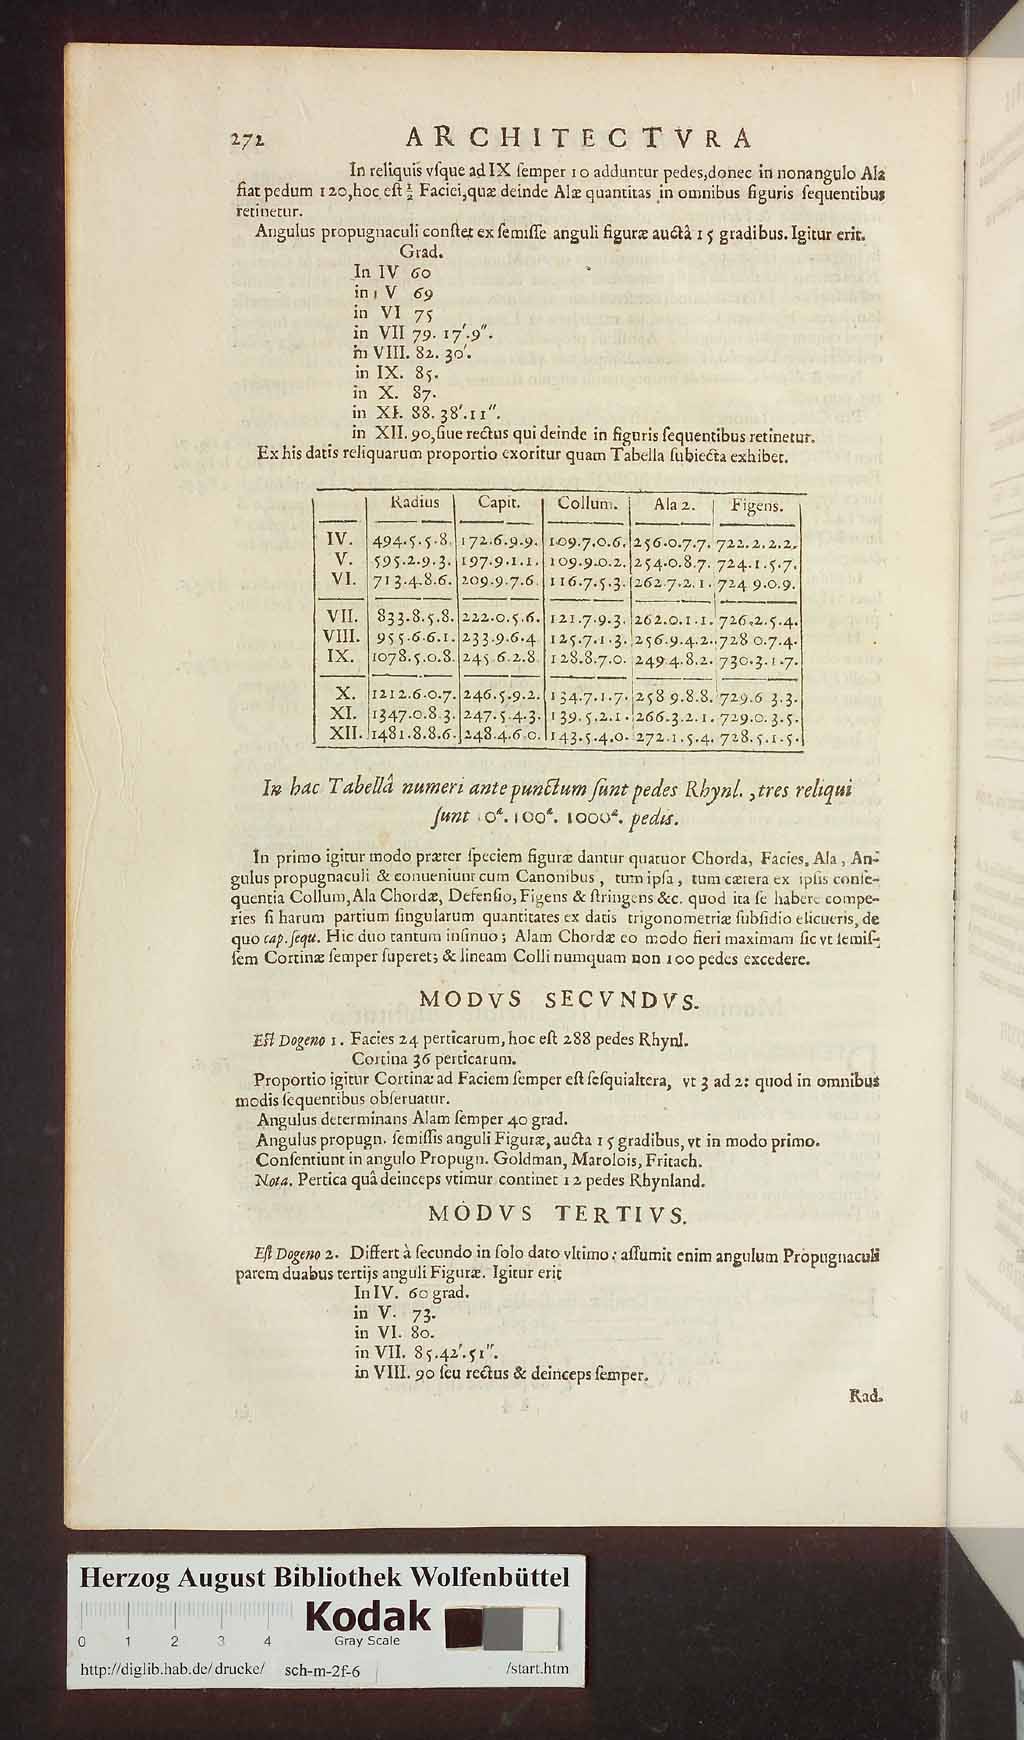 272 ARCHITECTVRA
In reliquis vſque ad IX ſemper 10 adduntur pedes,donec in nonangulo Ala
fiat pedum 120,hoc eſt ½ Faciei,quæ deinde Alæ quantitas in omnibus figuris ſequentibus
retinetur.
Angulus propugnaculi conſtet ex ſemiſſe anguli figuræ auctâ 15 gradibus. Igitur erit.
Grad.
In IV 60
in V 69
in VI 75
in VII 79. 17′.9″.
in VIII. 82. 30′.
in IX. 85.
in X. 87.
in XI. 88. 38′.11″.
in XII. 90,ſiue rectus qui deinde in figuris ſequentibus retinetur.
Ex his datis reliquarum proportio exoritur quam Tabella ſubiecta exhibet.
Radius Capit. Collum. Ala 2. Figens.
IV. 494.5.5.8. 172.6.9.9. 109.7.0.6. 256.0.7.7. 722.2.2.2.
V. 595.2.9.3. 197.9.1.1. 109.9.0.2. 254.0.8.7. 724.1.5.7.
VI. 713.4.8.6. 209.9.7.6. 116.7.5.3. 262.7.2.1. 724 9.0.9.
VII. 833.8.5.8. 222.0.5.6. 121.7.9.3. 262.0.1.1. 726.2.5.4.
VIII. 955.6.6.1. 233.9.6.4 125.7.1.3. 256.9.4.2. 728 0.7.4.
IX. 1078.5.0.8. 245 6.2.8. 128.8.7.0. 249 4.8.2. 730.3.1.7.
X. 1212.6.0.7. 246.5.9.2. 134.7.1.7. 258 9.8.8. 729.6 3.3.
XI. 1347.0.8 3. 247.5 4.3. 139.5.2.1. 266.3.2.1. 729.0.3.5.
XII. 1481.8.8.6. 248.4.6.0. 143.5.4.0. 272.1.5.4. 728.5.1.5.
In hac Tabellâ numeri ante punctum ſunt pedes Rhynl. ,tres reliqui
ſunt 10ª. 100ª. 1000ª. pedis.
In primo igitur modo præter ſpeciem figuræ dantur quatuor Chorda, Facies, Ala , An-
gulus propugnaculi & conueniunt cum Canonibus , tum ipſa , tum cætera ex ipſis conſe-
quentia Collum, Ala Chordæ, Defenſio, Figens & ſtringens &c. quod ita ſe habere compe-
ries ſi harum partium ſingularum quantitates ex datis trigonometriæ ſubſidio elicueris, de
quo cap. ſequ. Hic duo tantum inſinuo ; Alam Chordæ eo modo fieri maximam ſic vt ſemiſ-
ſem Cortinæ ſemper ſuperet; & lineam Colli numquam non 100 pedes excedere.
MODVS SECVNDVS.
Eſt Dogeno 1. Facies 24 perticarum, hoc eſt 288 pedes Rhynl.
Cortina 36 perticarum.
Proportio igitur Cortinæ ad Faciem ſemper eſt ſeſquialtera, vt 3 ad 2: quod in omnibus
modis ſequentibus obſeruatur.
Angulus determinans Alam ſemper 40 grad.
Angulus propugn. ſemiſſis anguli Figuræ, aucta 15 gradibus, vt in modo primo.
Conſentiunt in angulo Propugn. Goldman, Marolois, Fritach.
Nota. Pertica quâ deinceps vtimur continet 12 pedes Rhynland.
MODVS TERTIVS.
Eſt Dogeno 2. Differt à ſecundo in ſolo dato vltimo : aſſumit enim angulum Propugnaculi
parem duabus tertijs anguli Figuræ. Igitur erit
In IV. 60 grad.
in V. 73.
in VI. 80.
in VII. 85.42′.51″.
in VIII. 90 ſeu rectus & deinceps ſemper.
Rad.
Herzog August Bibliothek Wolfenbüttel
0 1 2 3 4
Kodak
Gray Scale
http://diglib.hab.de/drucke/ sch-m-2f-6 /start.htm